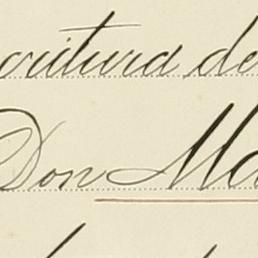 critura de
Don Ma